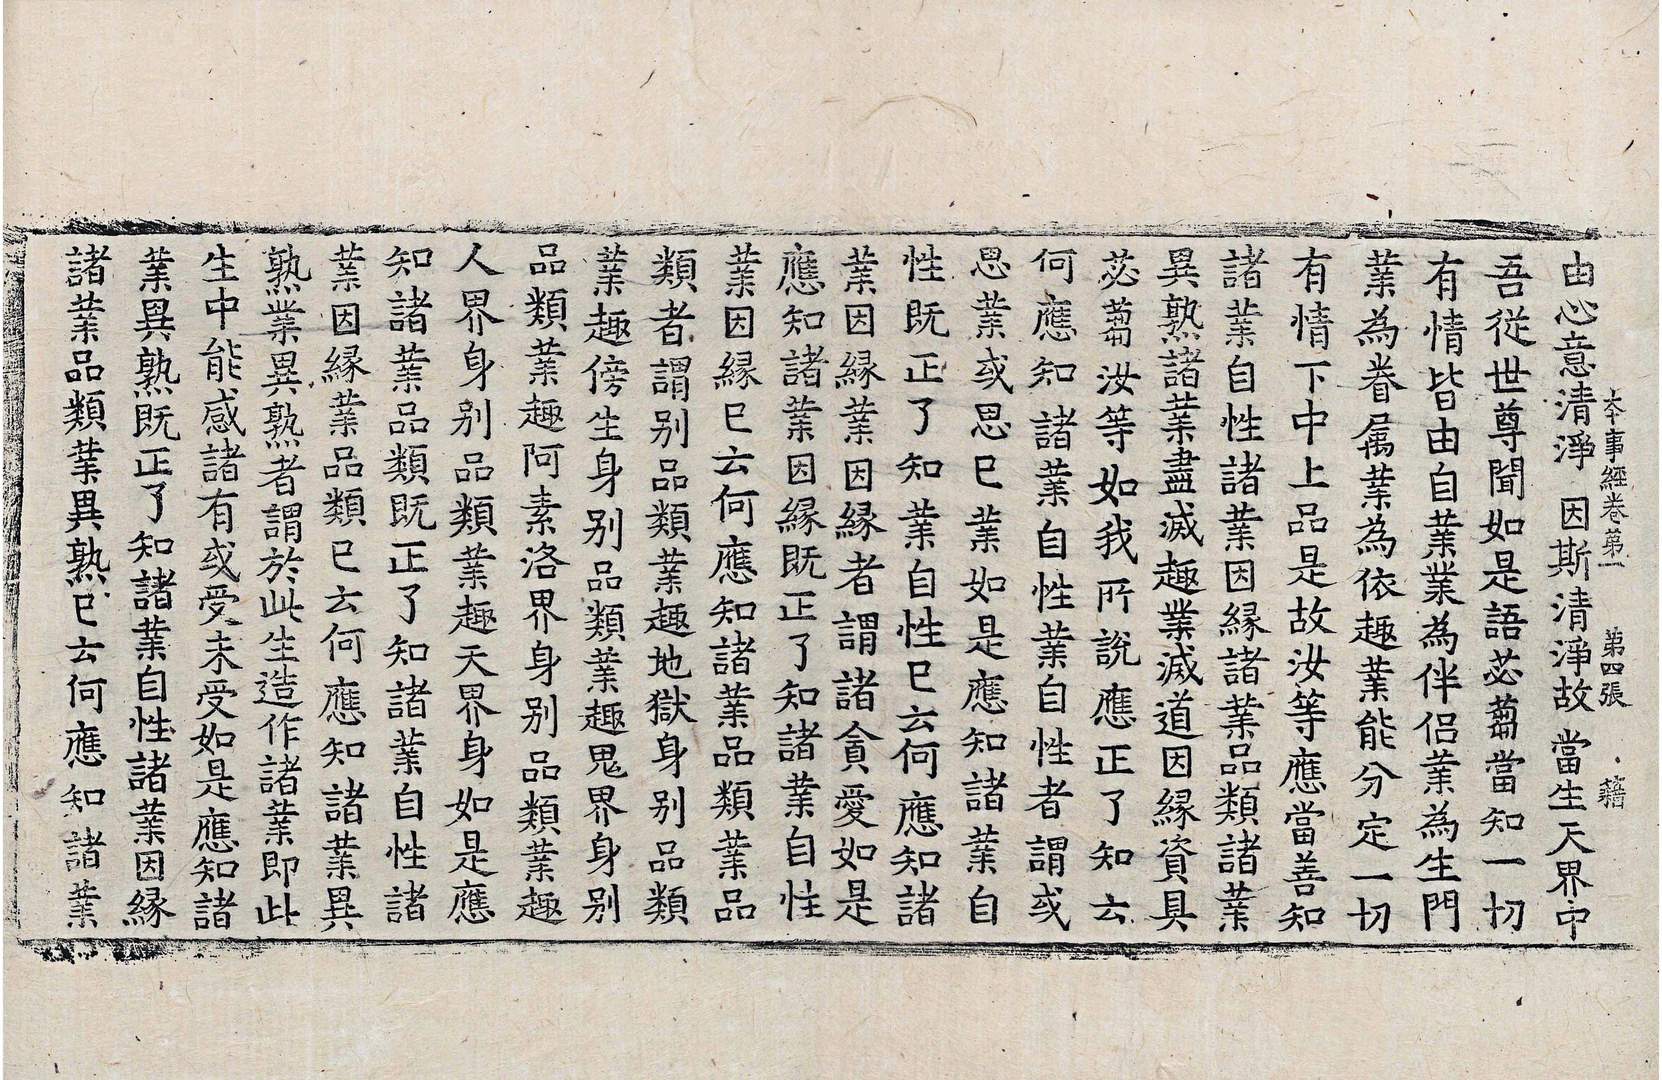 夲事經卷第一　第四張　藉
由心意清淨　因斯清淨故　當生天界中
吾從世尊聞如是語苾蒭當知一切
有情皆由自業業為伴侶業為生門
業為眷属業為依趣業能分定一切
有情下中上品是故汝等應當善知
諸業自性諸業因縁諸業品類諸業
異熟諸業盡滅趣業滅道因縁資具
苾蒭汝等如我所說應正了知云
何應知諸業自性業自性者謂或
思業或思已業如是應知諸業自
性既正了知業自性已云何應知諸
業因縁業因縁者謂諸貪愛如是
應知諸業因縁既正了知諸業自性
業因縁已云何應知諸業品類業品
類者謂別品類業趣地獄身別品類
業趣傍生身別品類業趣鬼界身別
品類業趣阿素洛界身別品類業趣
人界身別品類業趣天界身如是應
知諸業品類既正了知諸業自性諸
業因縁業品類已云何應知諸業異
熟業異熟者謂於此生造作諸業即此
生中能感諸有或受未受如是應知諸
業異熟既正了知諸業自性諸業因縁
諸業品類業異熟已云何應知諸業